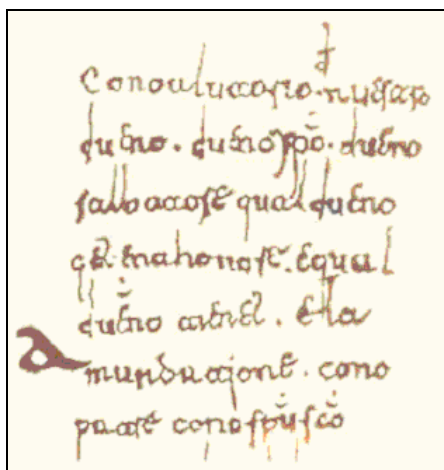 Conoaiutorio de nuestro
dueno. dueno xp̄o. dueno
salbatore qual dueno
get enahonore. equal
dueno tienet. ela
mandatjone. cono
patre cono sp̄u sc̄o